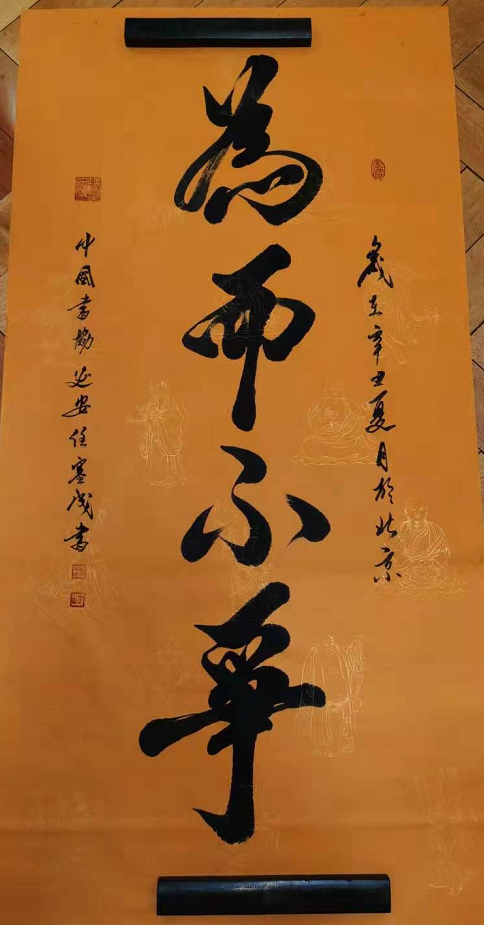 歲在辛丑夏月於北京
為而不爭
中國書協延安任塞成書